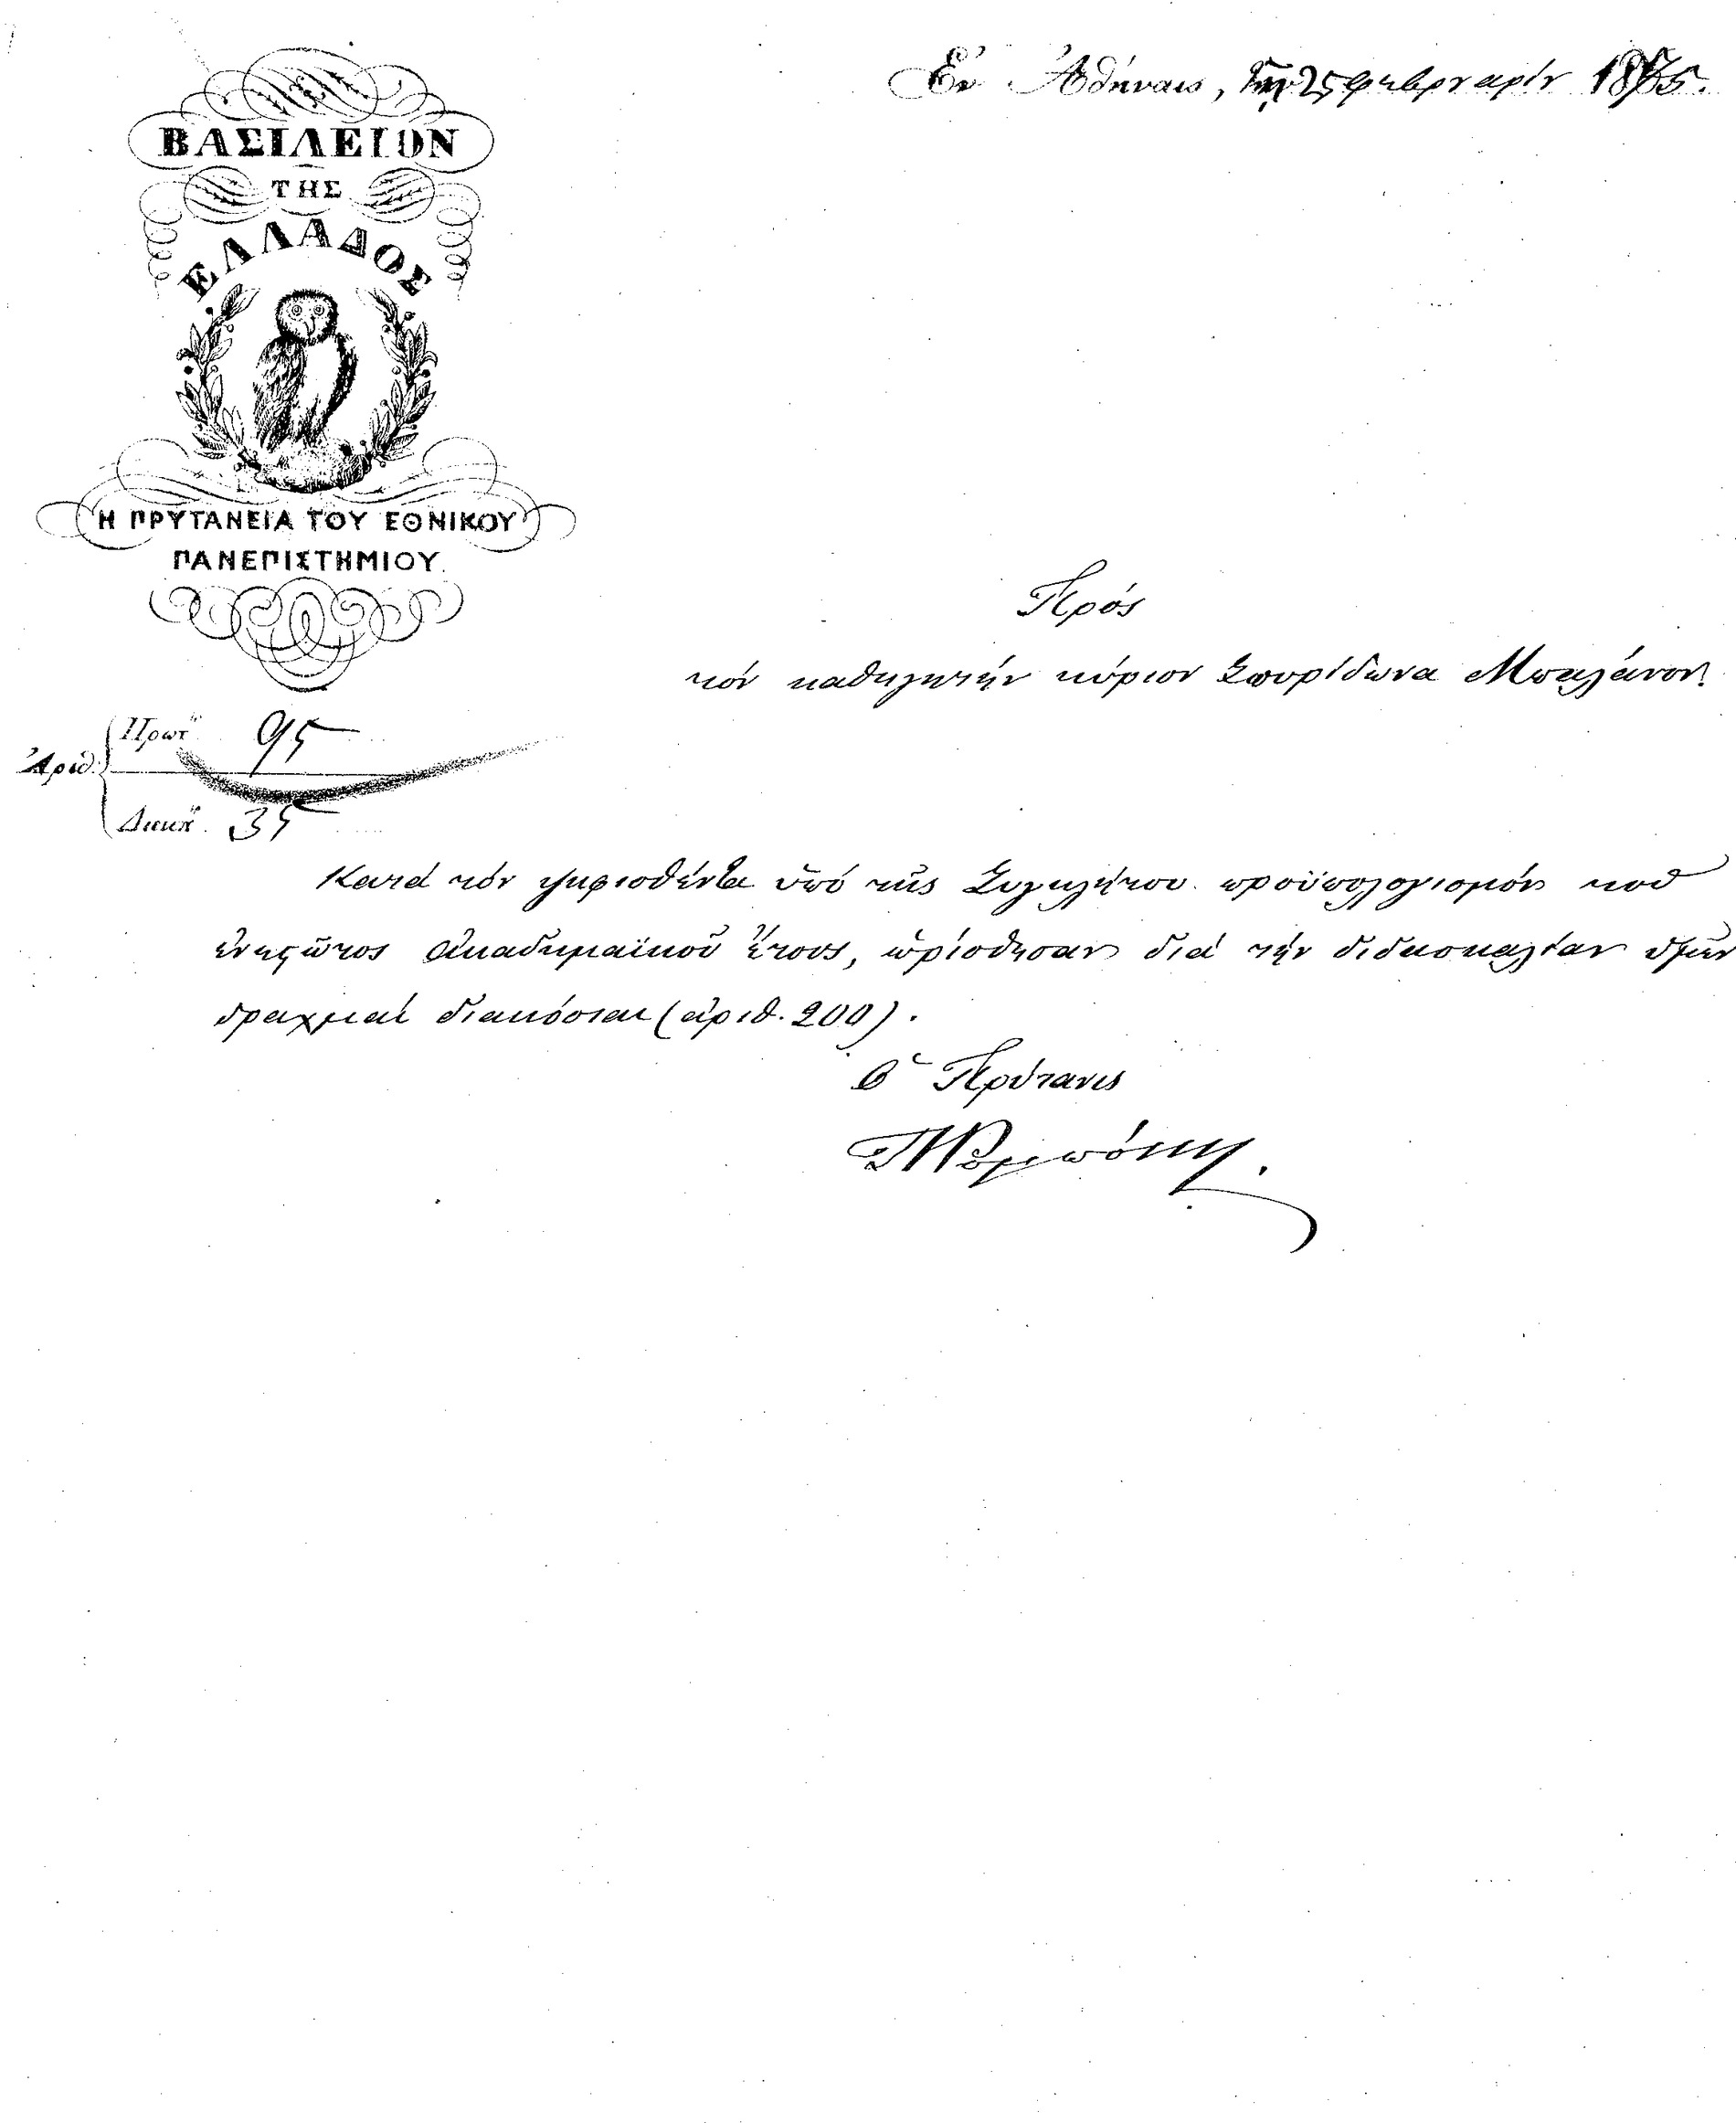 Ἐν Ἀθήναις, τὴν 25 φεβρουαρίου
ΒΑΣΙΛΕΙΟΝ
ΤΗΣ
ΕΛΛΑΔΟΣ
Η ΠΡΥΤΑΝΕΙΑ ΤΟΥ ΕΘΝΙΚΟΥ
ΠΑΝΕΠΙΣΤΗΜΙΟΥ.
Πρός
τόν καθηγητήν κύριον Σπυρίδωνα Μπαλάνον.
Πρωτ. 95
Ἀριθ.
Διεκπ. 35
Κατά τόν ψηφισθέντα ὑπό τῆς Συγκλήτου προϋπολογισμόν τοῦ
ἐνεστῶτος ἀκαδημαϊκοῦ ἔτους, ὡρίσθησαν διά τήν διδασκαλίαν ὑμῶν
δραχμαί διακόσιαι (ἀριθ. 200).
Ὁ Πρύτανις